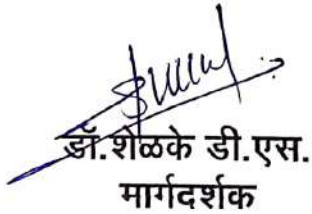 डॉ.शेळके डी.एस.
मार्गदर्शक